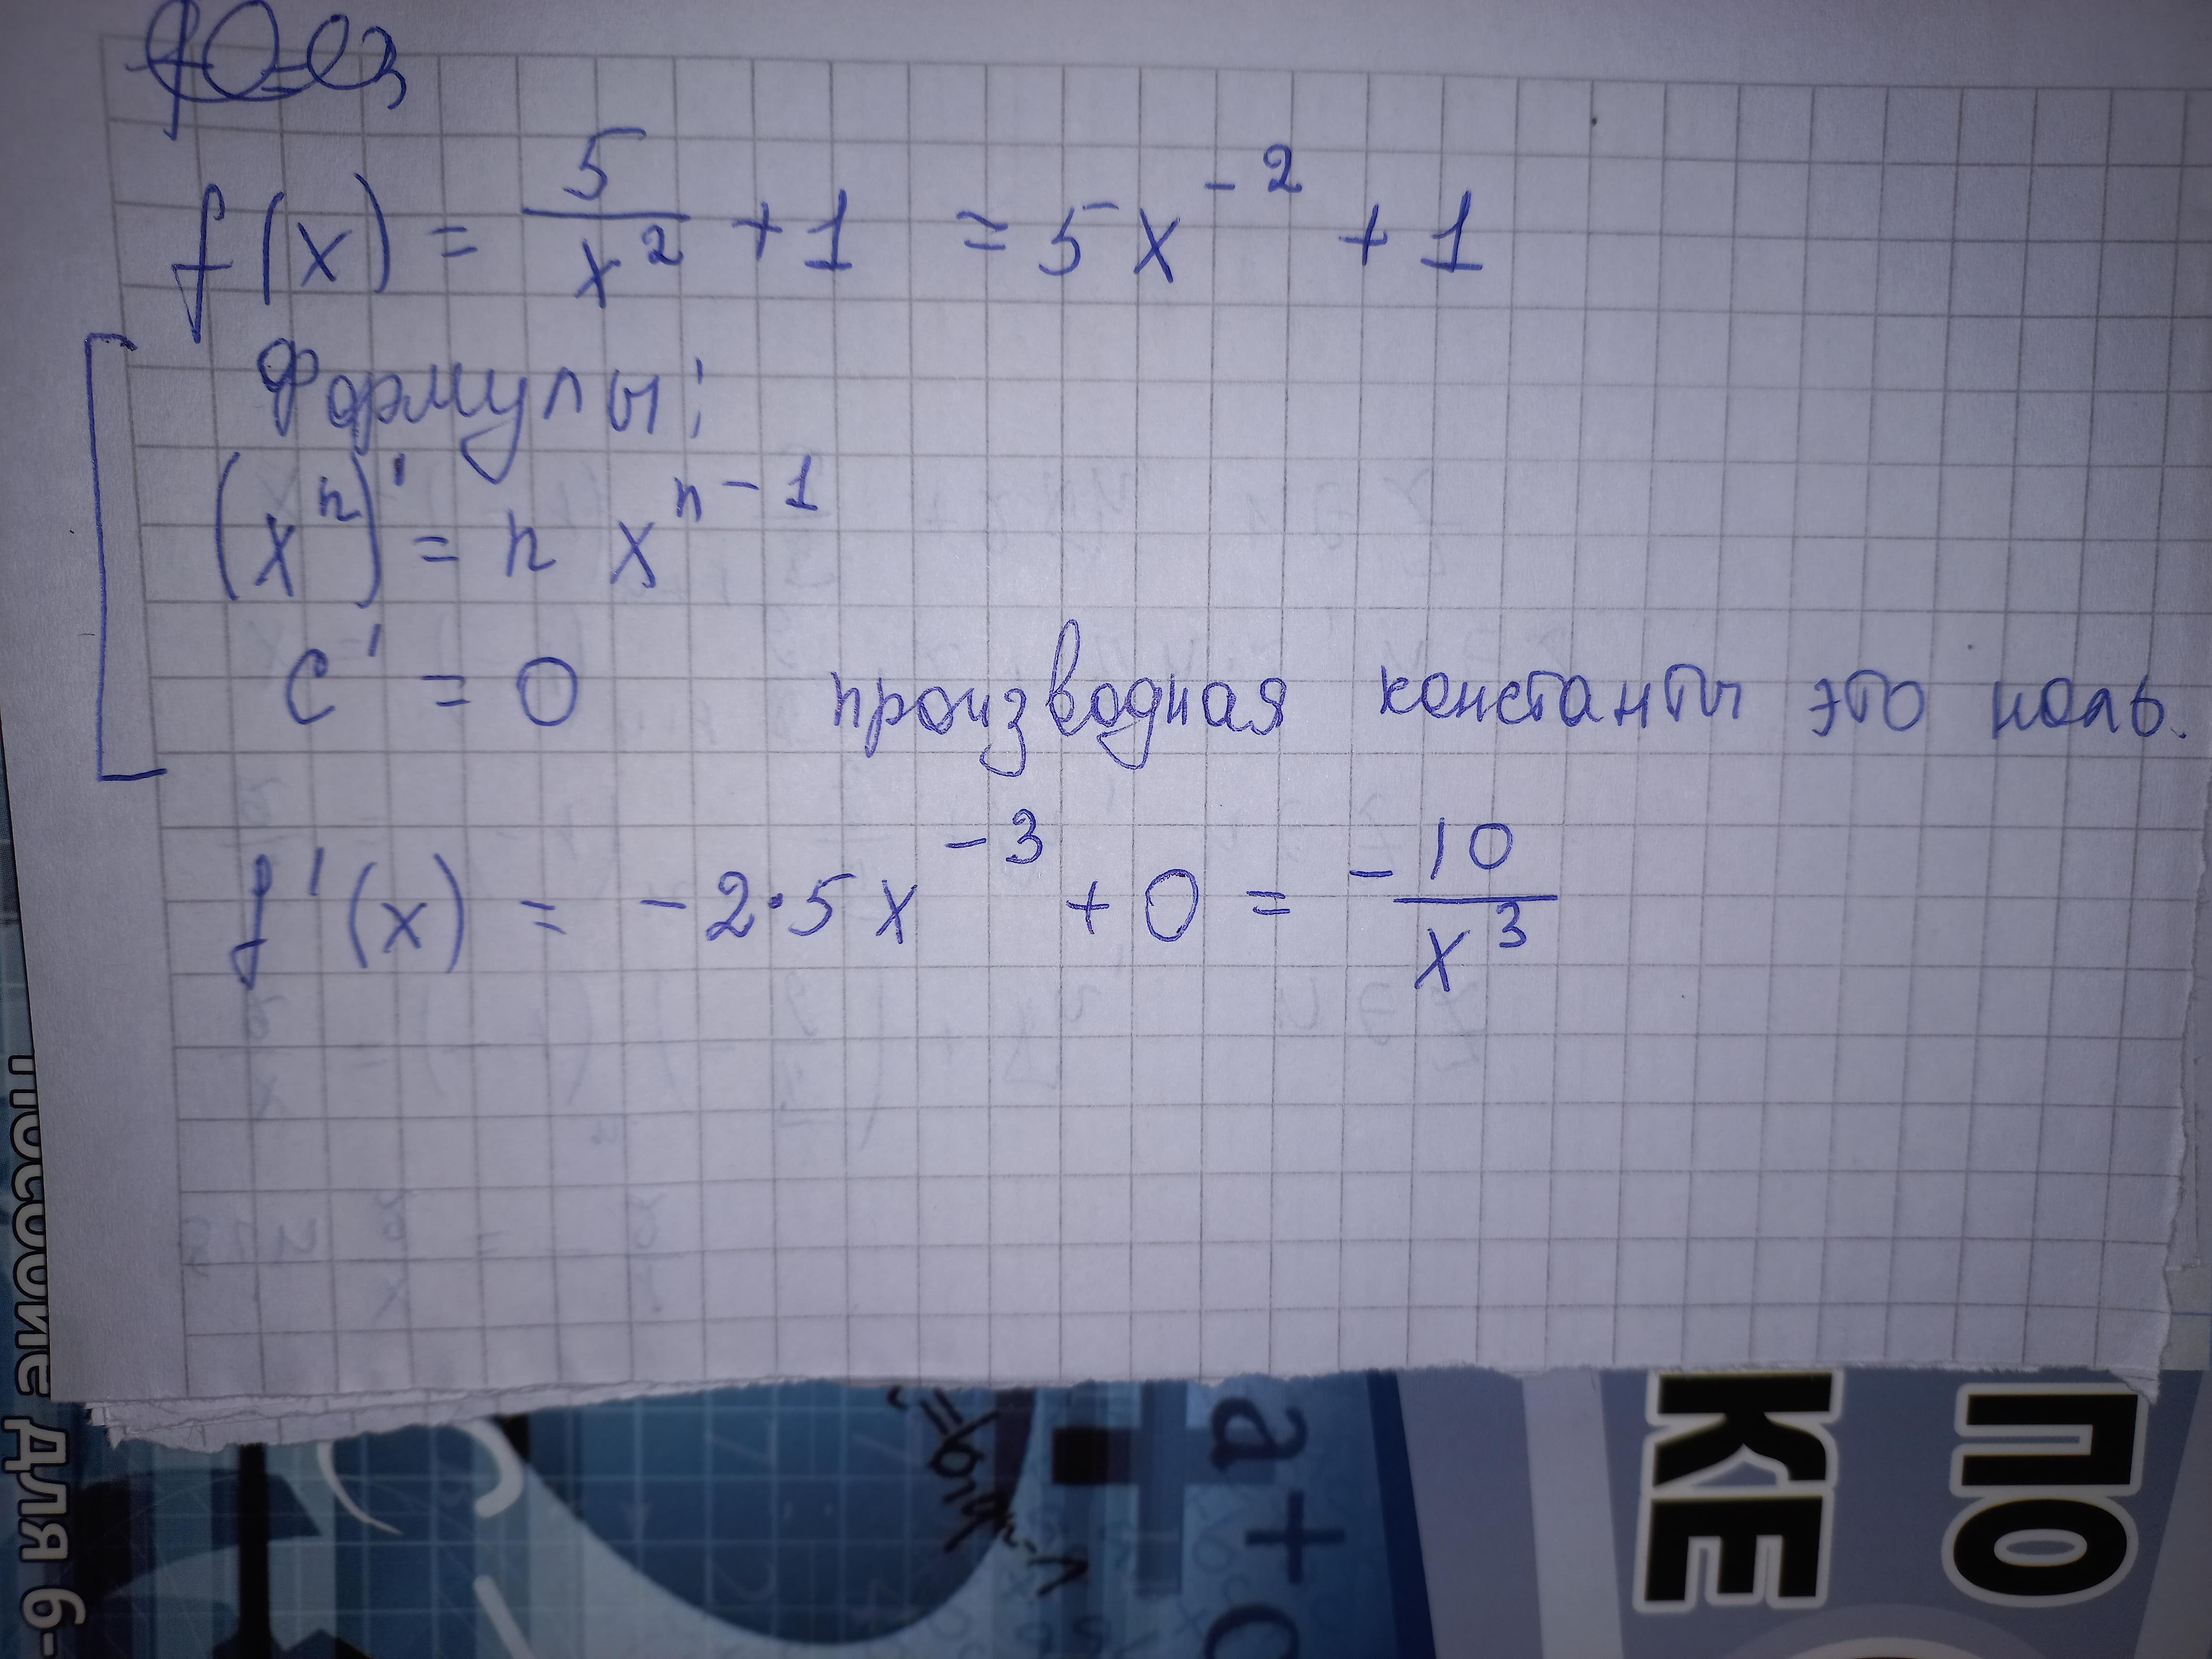 f(x) = 5/x² + 1 = 5x⁻² + 1
Формулы:
(xⁿ)' = n xⁿ⁻¹
c' = 0 производная константы это ноль.
f'(x) = -2·5x⁻³ + 0 = -10/x³
пособие для 6-
a+
ПО
КЕ